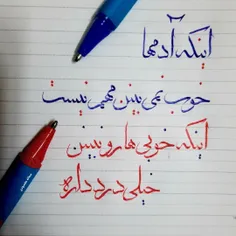 اینکه آدمها
خوب نمی بینن مهم نیست
اینکه خوبی ها رو نبینن
خیلی درد داره